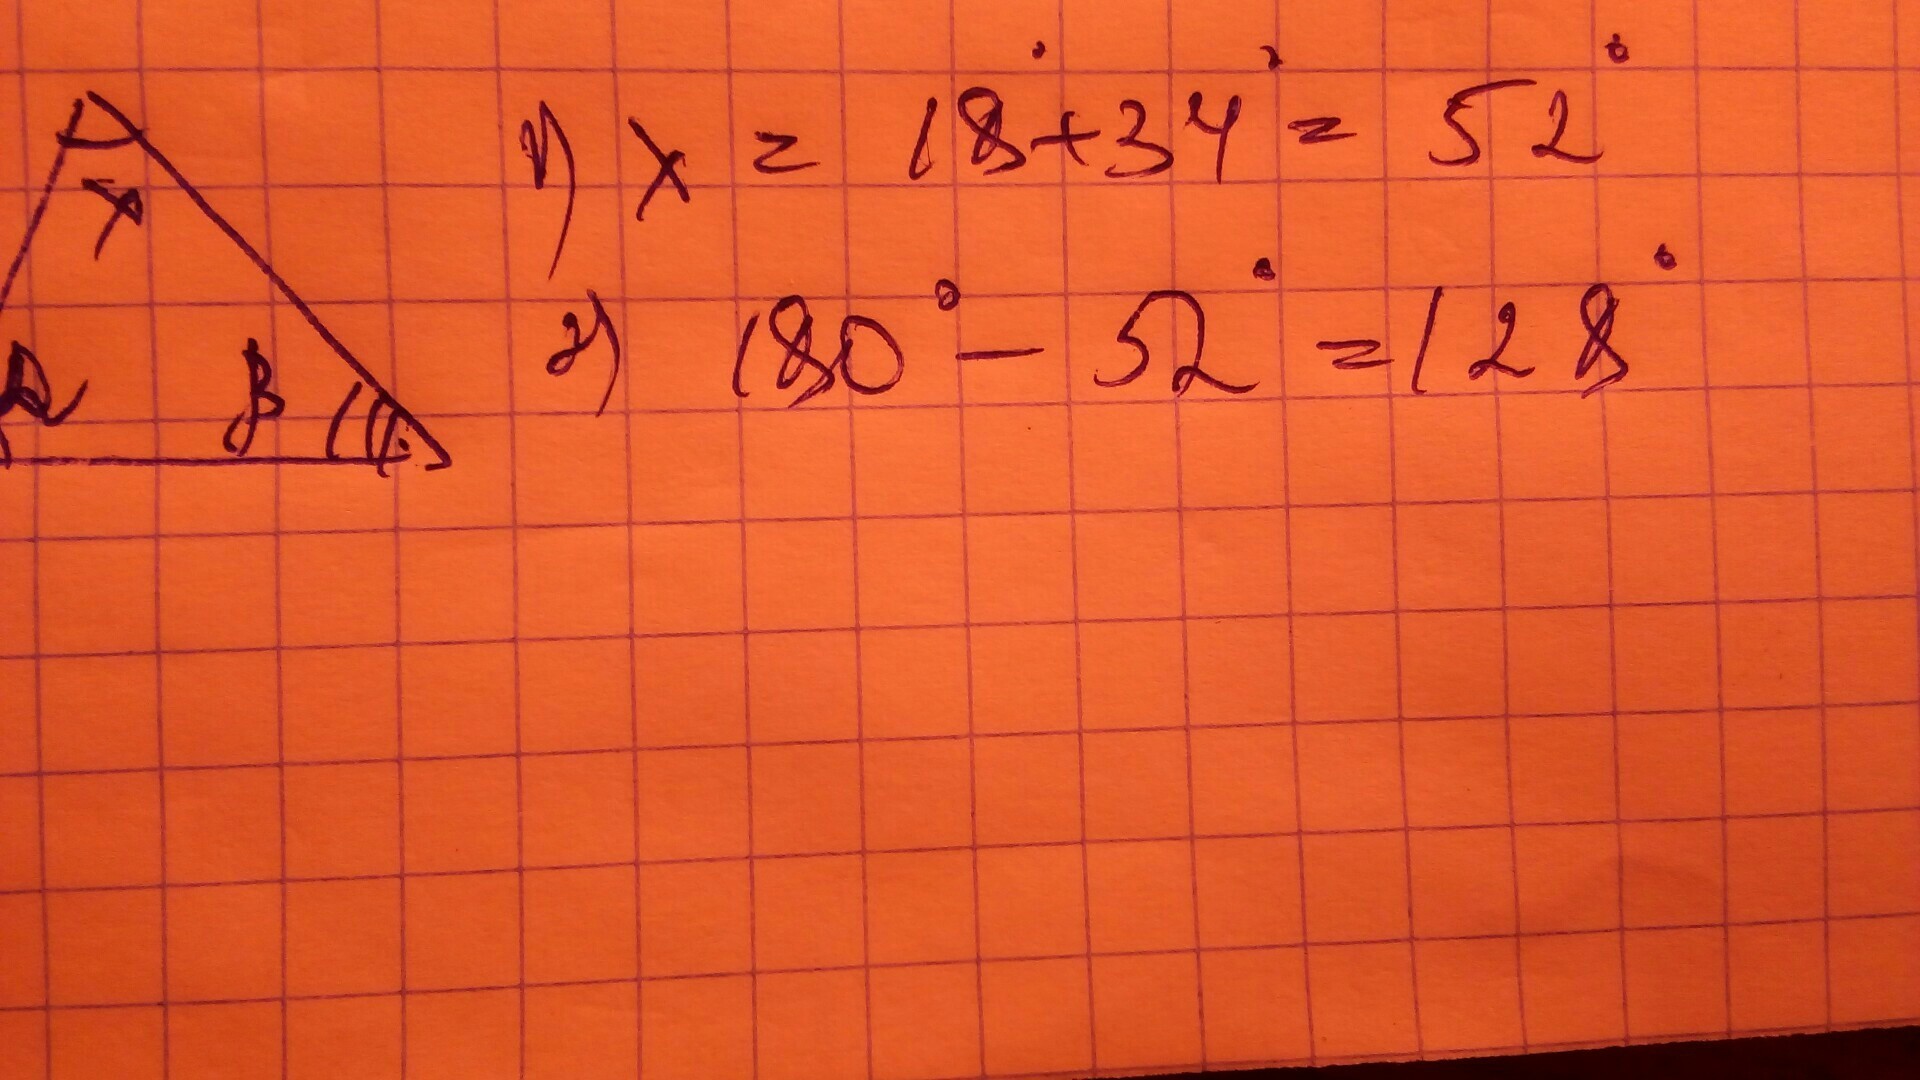 1) x = 18° + 34° = 52°
2) 180° - 52° = 128°
x
α β